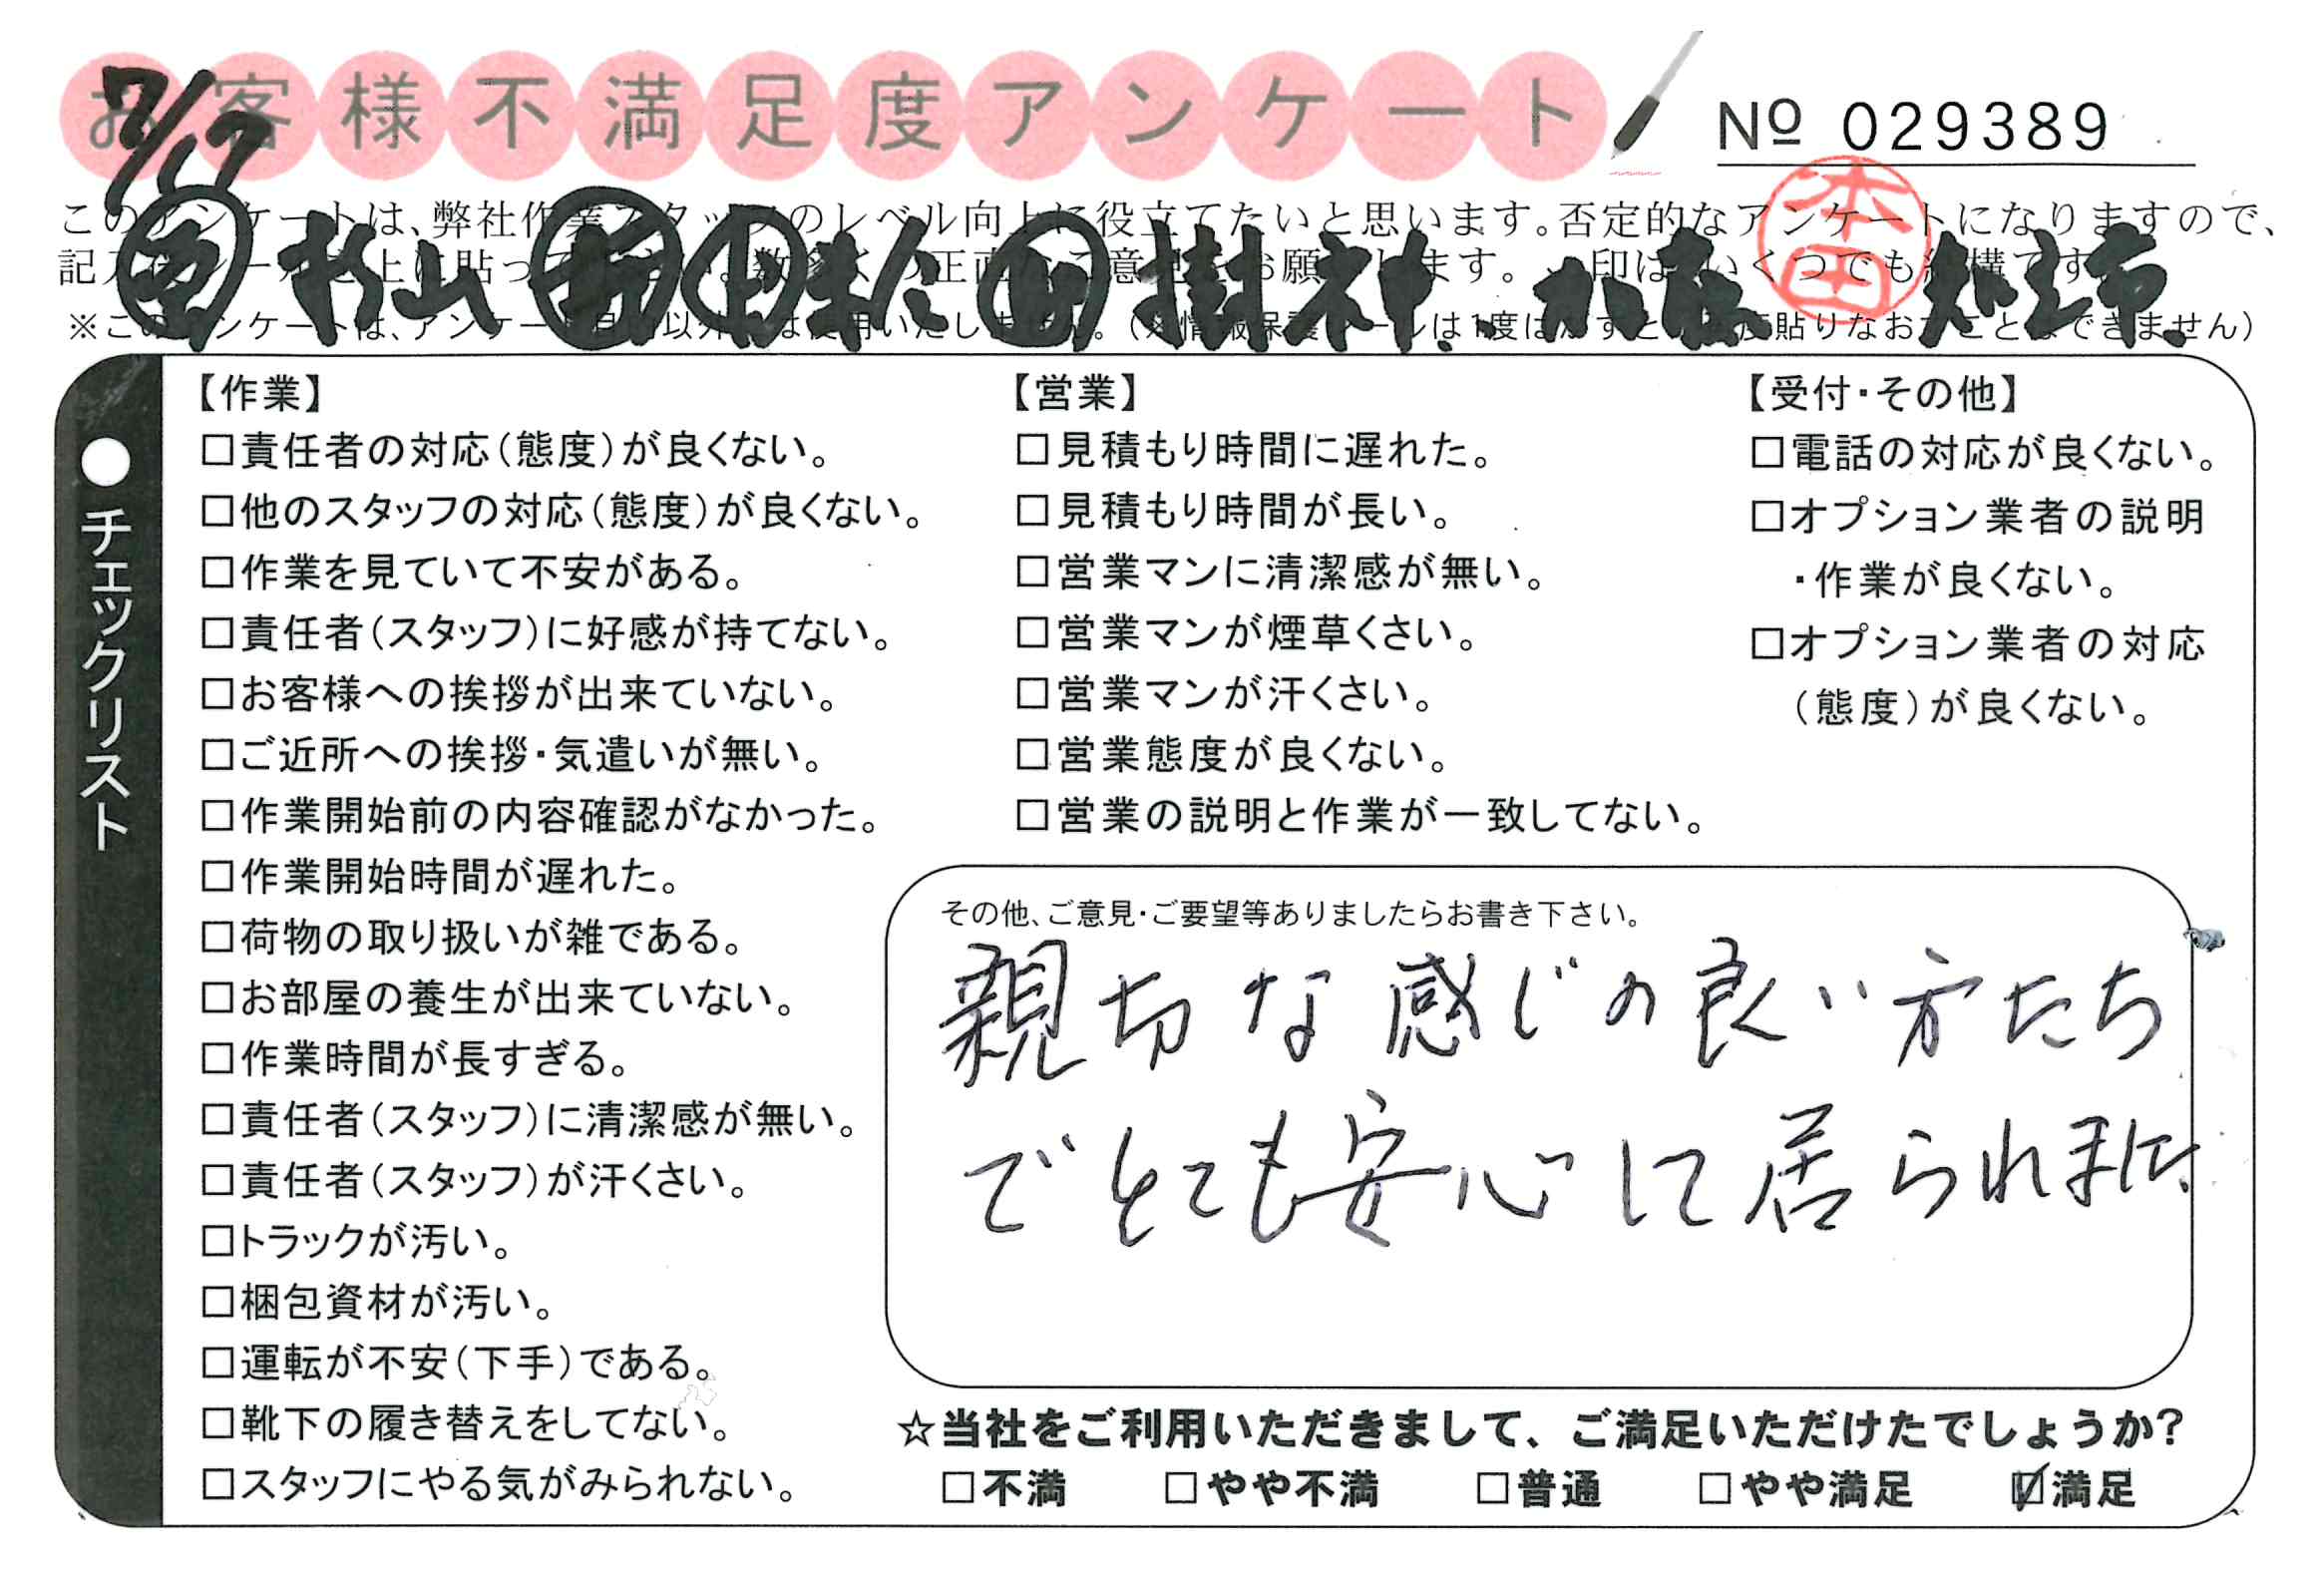 お客様不満足度アンケート
7/17
№ 029389
本田
このアンケートは、弊社作業スタッフのレベル向上に役立てたいと思います。否定的なアンケートになりますので、
杉山
※このアンケートは、アンケート
【作業】
□責任者の対応(態度)が良くない。
□他のスタッフの対応(態度)が良くない。
□作業を見ていて不安がある。
□責任者(スタッフ)に好感が持てない。
□お客様への挨拶が出来ていない。
□ご近所への挨拶・気遣いが無い。
□作業開始前の内容確認がなかった。
□作業開始時間が遅れた。
□荷物の取り扱いが雑である。
□お部屋の養生が出来ていない。
□作業時間が長すぎる。
□責任者(スタッフ)に清潔感が無い。
□責任者(スタッフ)が汗くさい。
□トラックが汚い。
□梱包資材が汚い。
□運転が不安(下手)である。
□靴下の履き替えをしてない。
□スタッフにやる気がみられない。
【営業】
□見積もり時間に遅れた。
□見積もり時間が長い。
□営業マンに清潔感が無い。
□営業マンが煙草くさい。
□営業マンが汗くさい。
□営業態度が良くない。
□営業の説明と作業が一致してない。
【受付・その他】
□電話の対応が良くない。
□オプション業者の説明
・作業が良くない。
□オプション業者の対応
(態度)が良くない。
●チェックリスト
その他、ご意見・ご要望等ありましたらお書き下さい。
親切な感じの良い方たち
でとても安心して居られました。
☆当社をご利用いただきまして、ご満足いただけたでしょうか?
□不満 □やや不満 □普通 □やや満足 ☑満足